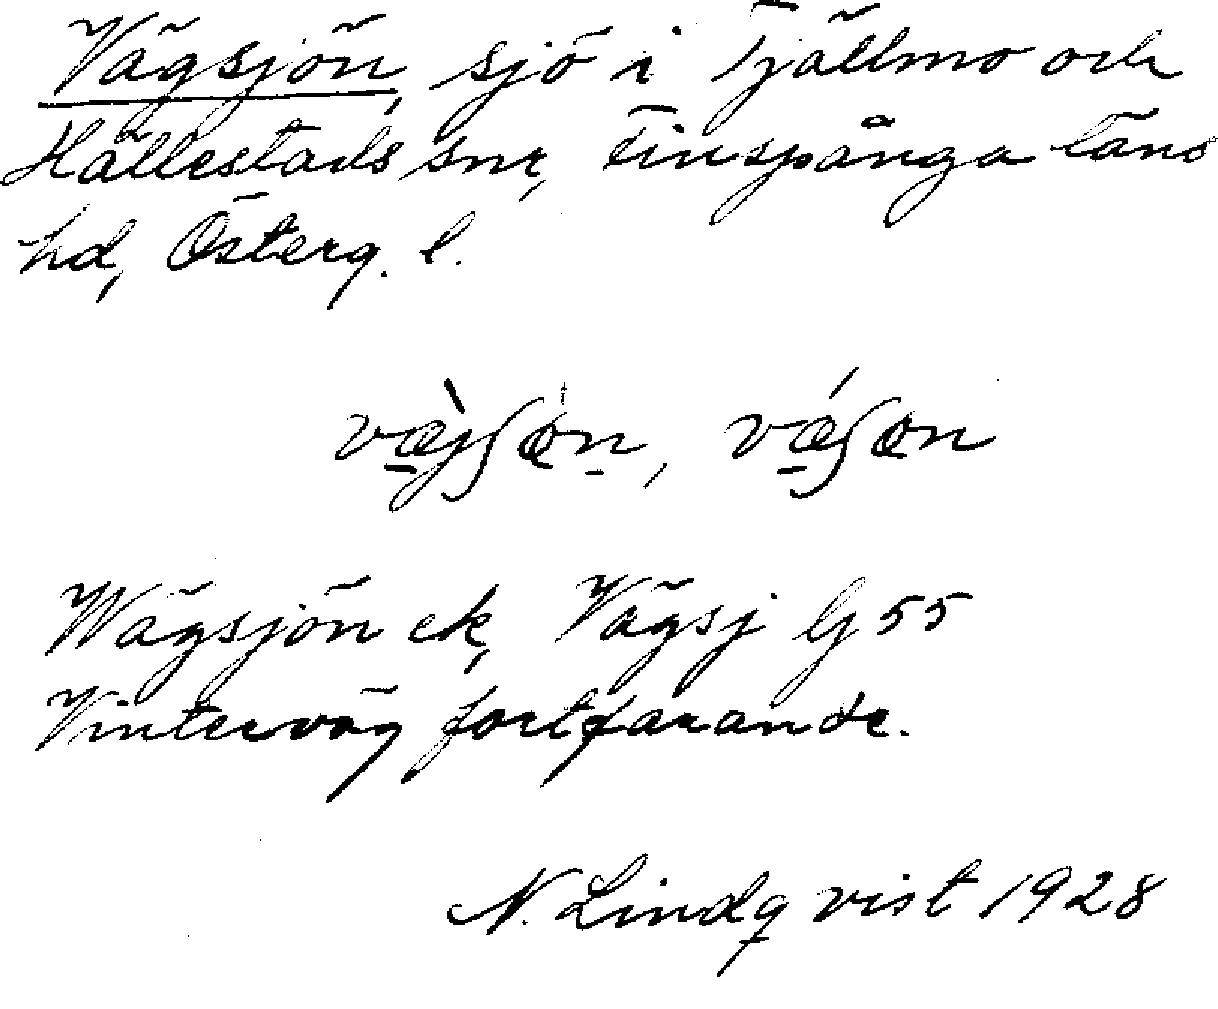 Vägsjön, sjö i Tjällmo och
Hällestads snr, Finspånga läns
hd, Österg. l.
Wägsjön ek, Vägsj G 55
Vinterväg fortfarande.
N. Lindqvist 1928